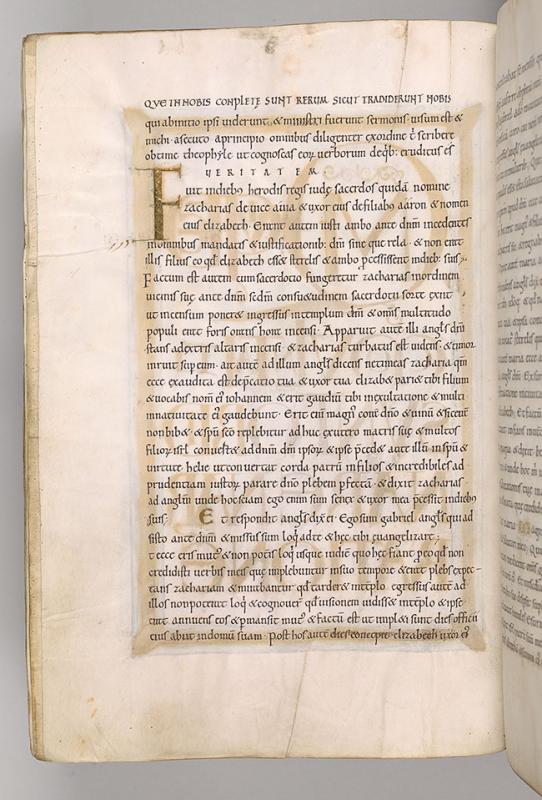 QUE IN NOBIS CONPLETE SUNT RERUM SICUT TRADIDERUNT NOBIS
qui ab initio ipsi uiderunt & ministri fuerunt sermonis uisum est &
michi asecuto a principio omnibus diligenter exordine t scribere
obtime theophyle ut cognoscas eor uerborum de qb; eruditus es
UERITATEM
Fuit indieb; herodis regis iude sacerdos quida nomine
zacharias de uice auia & uxor ei de filiab; aaron & nomen
eius elizabeth. Erant autem iusti ambo ante dnm incedentes
inomnibus mandatis & iustificationib; dni sine querela & non erat
illis filius eo qd elizabeth esset sterelis & ambo pcessissent indieb; suis
Factum est autem cum sacerdotio fungeretur zacharias inordinem
uicinis sue ante dnm scdm consuetudinem sacerdotii sorte exiit
ut incensum poneret ingressus intemplum dni & omis multitudo
populi erat foris orans hore incensi. Apparuit aute illi angls dni
stans adextris altaris incensi & zacharias turbatus est uidens & timor
inruit sup eum. ait aute ad illum angls dicens ne timeas zacharia qm
ecce exaudita est depcatio tua & uxor tua elizabet pari& tibi filium
& uocabis nom ei iohannem & erit gaudiu tibi inexultatione & multi
innatiuitate ei gaudebunt. Erit eni magn corā dno & uinu & sicera
non bib& & spu sco replebitur adhuc exutero matris sue & multos
filior isrl conuert& ad dnm dm ipsor & ipse peced& ante illu inspu &
uirtute helie ut conuertat corda patru infilios & incredibiles ad
prudentiam iustor parare dno plebem pfecta. & dixit zacharias
ad anglm unde hoc sciam ego enim sum senex & uxor mea pcessit indieb;
suis. Et respondit angls dix ei. Ego sum gabriel angls qui ad
sisto ante dnm & missus sum loqi ad te & hec tibi euangelizare;
t ecce eris mut & non potis loqi usque indie quo hec fiant p eo qd non
credidisti uerbis meis que implebuntur insuo tempore & erat plebs expec
tans zachariam & mirabantur qd tardaret intemplo egressus aute ad
illos non poterat loqi & cognouer qd uisionem uidiss& intemplo & ipse
erat annuens eos & pmansit mut & factu est ut impleti sunt dies officii
eius abiit indomu suam. Post hos aute dies concepit elizabeth uxor ei